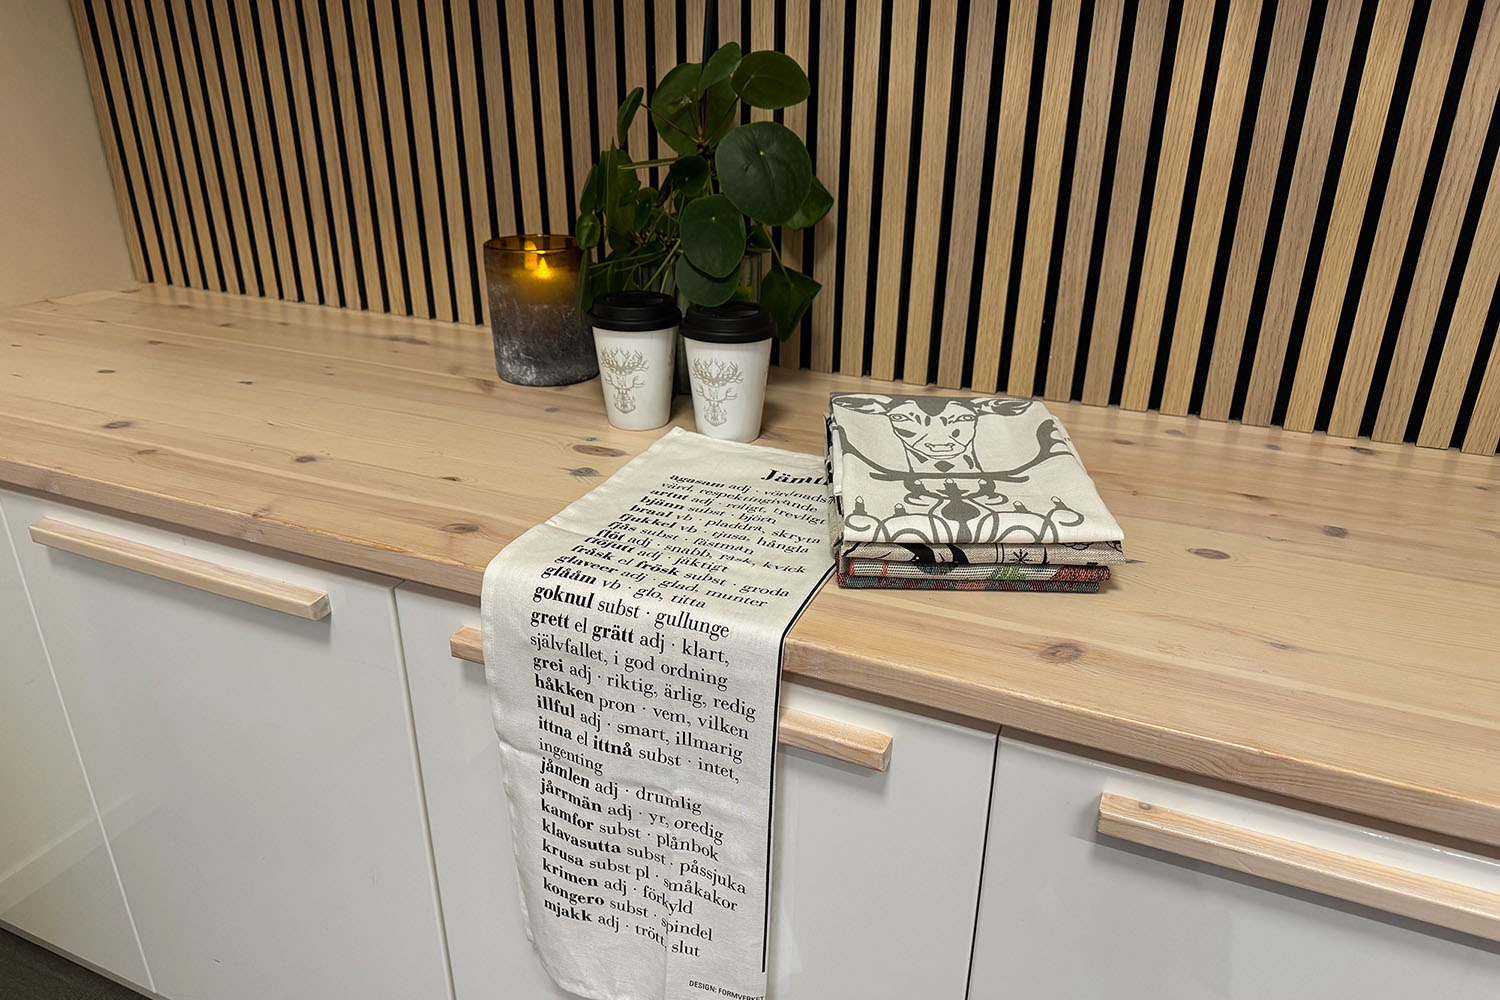 Jämt
agasam adj · vördnads
värd, respekingivande
artut adj · roligt, trevligt
bjänn subst · björn
braal vb · pladdra, skryta
fjukkel vb · tjusa, hångla
fjäs subst · fästman
flöt adj · snabb, rask, kvick
flöjutt adj · jäktigt
fråsk el frösk subst · groda
glaveer adj · glad, munter
glåâm vb · glo, titta
goknul subst · gullunge
grett el grätt adj · klart,
självfallet, i god ordning
grei adj · riktig, ärlig, redig
håkken pron · vem, vilken
illful adj · smart, illmarig
ittna el ittnå subst · intet,
ingenting
jåmlen adj · drumlig
jårrmän adj · yr, oredig
kamfor subst · plånbok
klavasutta subst · påssjuka
krusa subst pl · småkakor
krimen adj · förkyld
kongero subst · spindel
mjakk adj · trött, slut
DESIGN: FORMVERKET